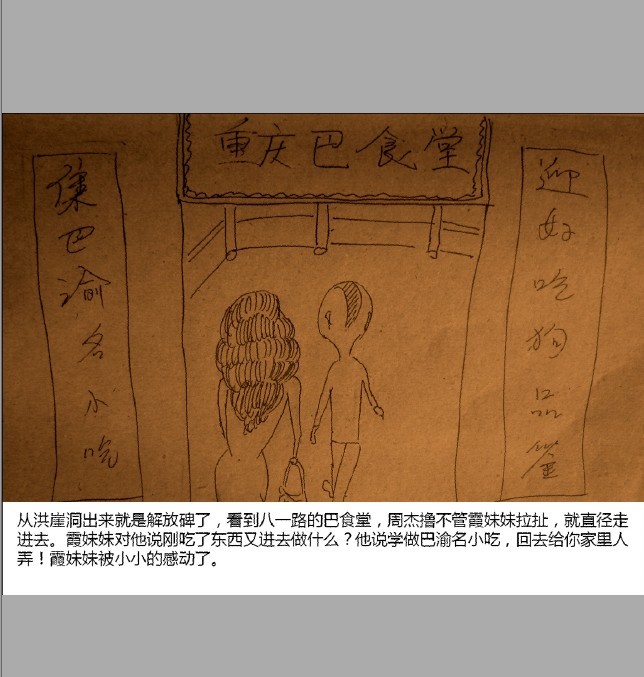 重庆巴食堂
集巴渝名小吃
迎好吃狗品鉴
从洪崖洞出来就是解放碑了，看到八一路的巴食堂，周杰撸不管霞妹妹拉扯，就直径走
进去。霞妹妹对他说刚吃了东西又进去做什么？他说学做巴渝名小吃，回去给你家里人
弄！霞妹妹被小小的感动了。